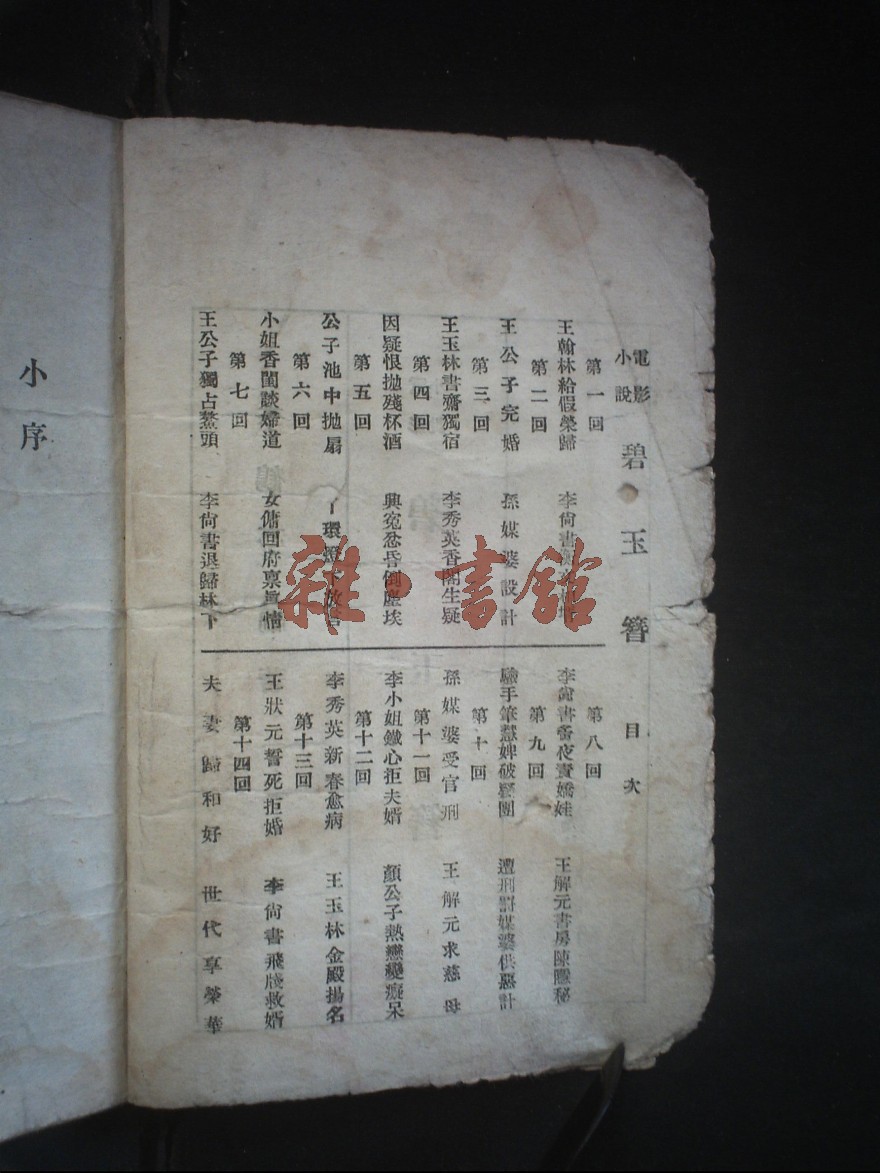 電影小說 碧玉簪 目次
第一回
王翰林給假榮歸 李尙書
第二回
王公子完婚 孫媒婆設計
第三回
王玉林書齋獨宿 李秀英香閣生疑
第四回
因疑恨拋殘杯酒 興寃忿昏倒塵埃
第五回
公子池中拋扇 丫環燈下
第六回
小姐香閨談婦道 女傭回府禀眞情
第七回
王公子獨占鰲頭 李尙書退歸林下
第八回
李尙書奮夜責嬌娃 王解元書房陳隱秘
第九回
驗手筆慧婢破疑團 遭刑罰媒婆供惡計
第十回
孫媒婆受官刑 王解元求慈母
第十一回
李小姐鐵心拒夫婿 顏公子熱戀變癡呆
第十二回
李秀英新春愈病 王玉林金殿揚名
第十三回
王狀元誓死拒婚 李尙書飛牋救婿
第十四回
夫妻歸和好 世代享榮華
小序
雜·書館